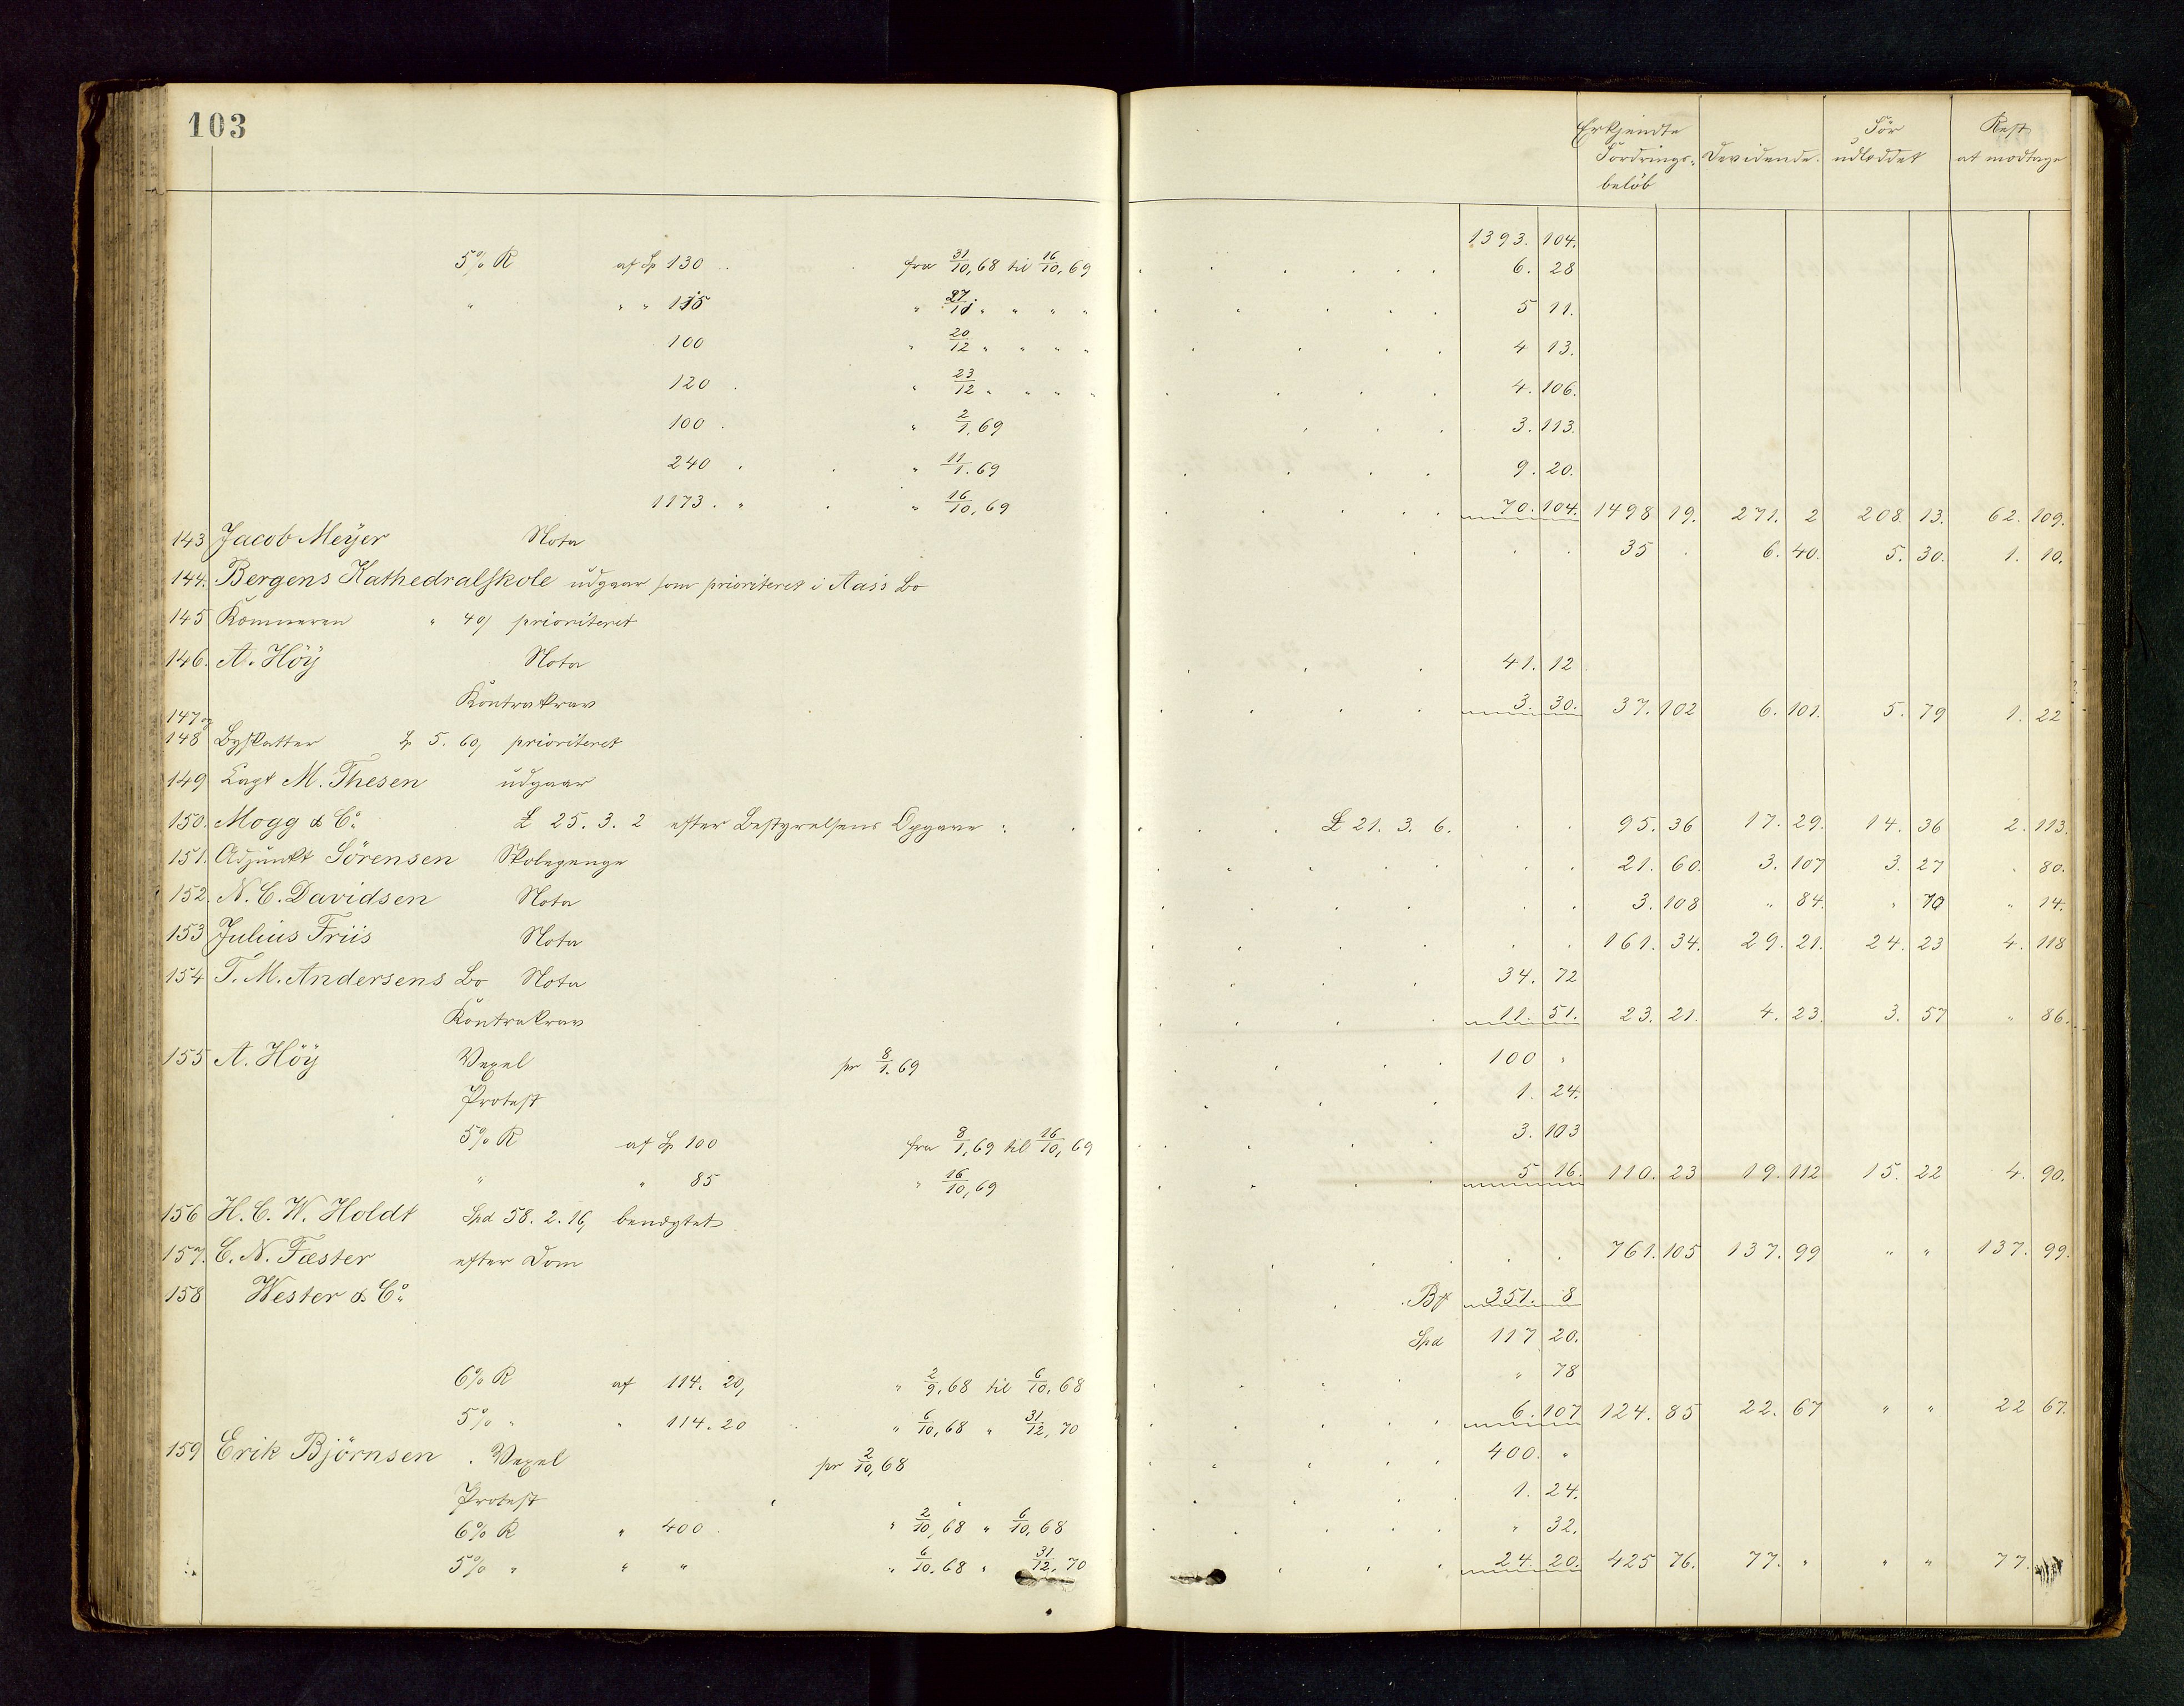 103
Erkjendte Fordrings- beløb Devidende. Før udloddet Rest at modtage
1393. 104.
5% R af Sp 130 fra 31/10, 68 til 16/10, 69 6. 28
" " " 115 " 27/11 " " " " 5 11.
100 " 20/12 " " " " 4 13.
120 " 23/12 " " " " 4. 106.
100 " 2/1. 69 3. 113.
240 " 11/1. 69 9. 20.
1173. " " 16/10, 69 70. 104. 1498 19. 271. 2 208. 13. 62. 109.
143 Jacob Meÿer Nota 35 . 6. 40. 5. 30. 1. 10.
144. Bergens Kathedralskole udgaar som prioriteret i Aas's Bo
145 Kæmneren " 49, prioriteret
146. A. Höÿ Nota 41. 12
Kontrakrav 3. 30. 37. 102 6. 101. 5. 79 1. 22
147 og
148 Byskatter Sp 5. 60, prioriteret
149 Capt M. Thesen udgaar
150. Mogg & Co. £ 25. 3. 2 efter Bestyrelsens Opgave : £ 21. 3. 6. 95. 36 17. 29. 14. 36 2. 113.
151. Adjunkt Sörensen Skolepenge 21. 60. 3. 107 3. 27 . 80.
152. N. C. Davidsen Nota 3. 108 " 84. " 70 " 14.
153 Julius Friis Nota 161. 34. 29. 21. 24. 23 4. 118
154 T. M. Andersens Bo Nota 34. 72
Kontrakrav 11. 51. 23. 21. 4. 23. 3. 57 " 86.
155 A. Höÿ Vexel pr 8/1. 69 100 "
Protest 1. 24.
5% R af Sp 100 fra 8/1, 69 til 16/10, 69 3. 103
" " 85 " 16/10, 69 5 16. 110. 23 19. 112 15. 22 4. 90.
156 H. C. W. Holdt Spd 58. 2. 16, benægtet
157. C. N. Fæster efter Dom 761. 105 137. 99 " " 137. 99.
158 Wester & Co. B# 351. 8
Spd 117 20.
6% R af 114. 20, " 2/9. 68 til 6/10. 68 " 78
5% " " 114. 20 " 6/10, 68 " 31/12, 70 6. 107 124. 85 22. 67 " " 22 67.
159 Erik Björnsen . Vexel pr 2/10, 68 400. "
Protest 1. 24.
6% R " 400. " 2/10, 68 " 6/10, 68 " 32.
5% " " " " 6/10. 68 " 31/12, 70 24. 20. 425 76. 77. " " " 77.